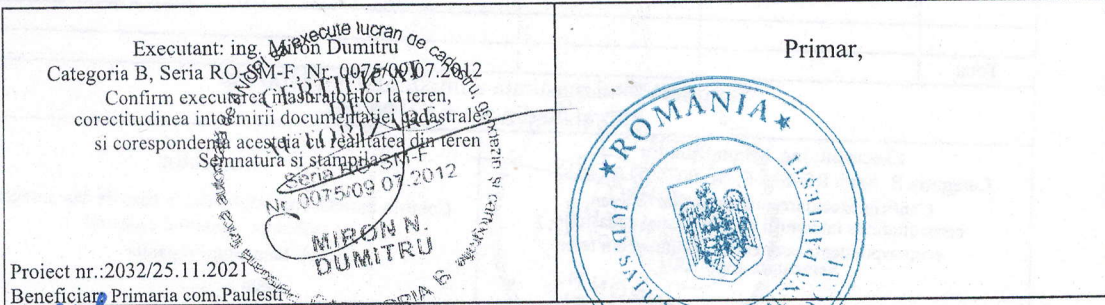 Executant: ing. Miron Dumitru
Categoria B, Seria RO-SM-F, Nr. 0075/09.07.2012
Confirm executarea masuratorilor la teren,
corectitudinea intocmirii documentatiei cadastrale
si corespondenta acesteia cu realitatea din teren
Semnatura si stampila
să execute lucrari de cadastru, geodezie și cartografie
CERTIFICAT
DE
AUTORIZARE
Seria RO-SM-F
Nr. 0075/09 07.2012
MIRON N.
DUMITRU
Proiect nr.:2032/25.11.2021
Beneficiar: Primaria com.Paulesti
Primar,
★ ROMÂNIA ★
JUD. SATU
PĂULEȘTI